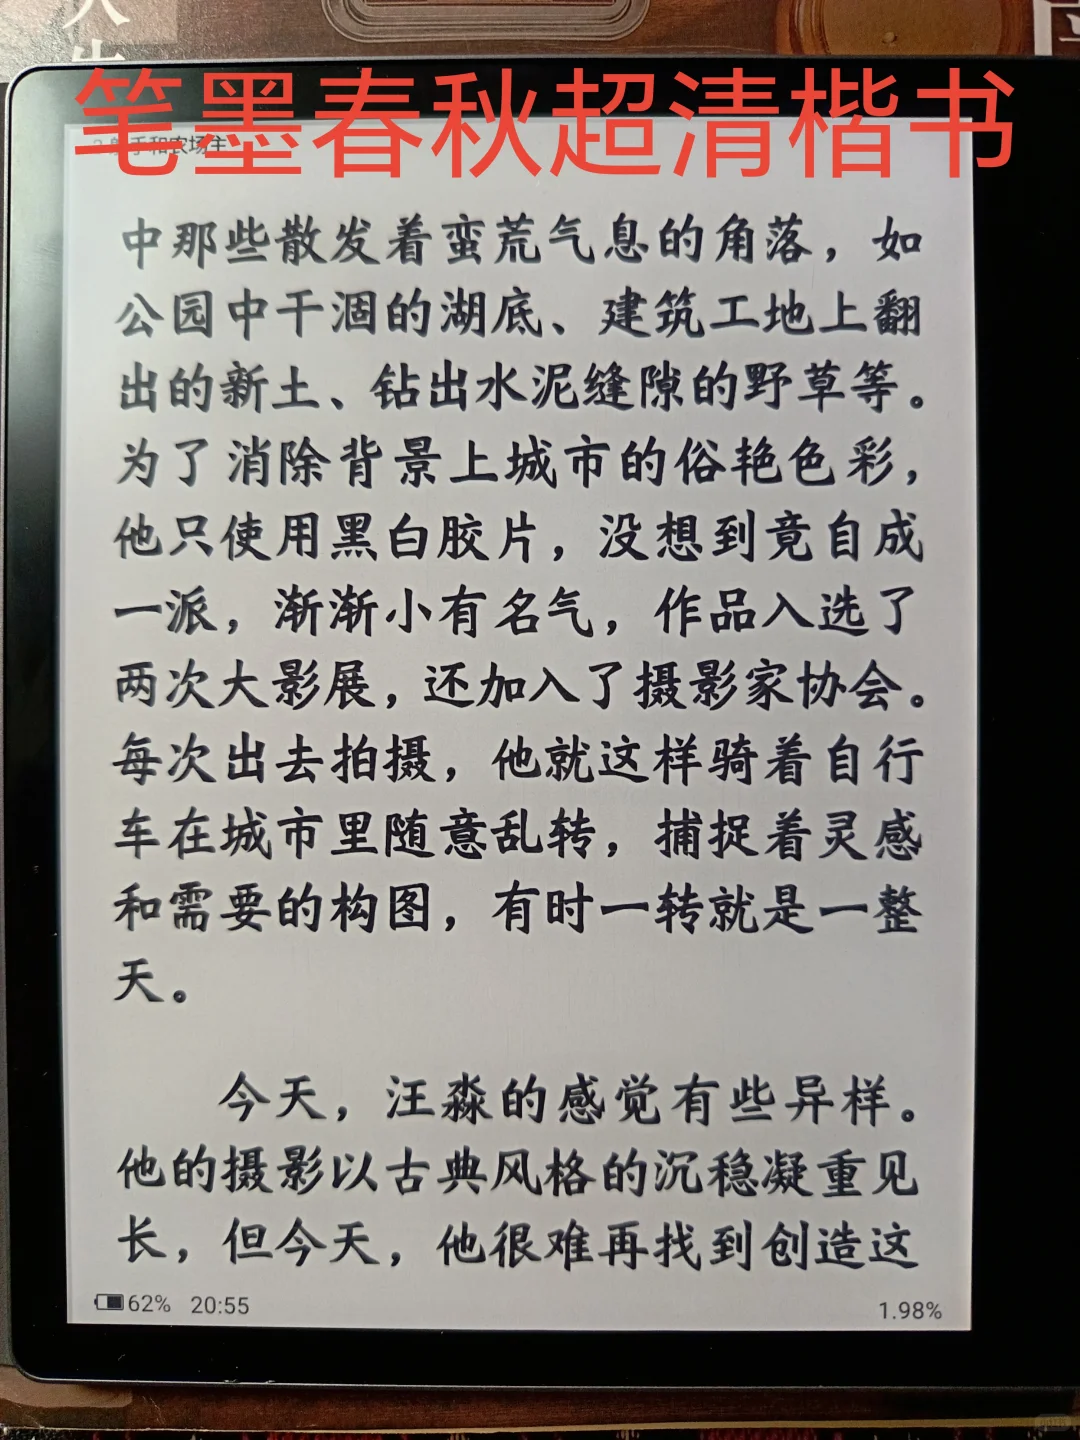 笔墨春秋超清楷书
手和农场主
中那些散发着蛮荒气息的角落，如
公园中干涸的湖底、建筑工地上翻
出的新土、钻出水泥缝隙的野草等。
为了消除背景上城市的俗艳色彩，
他只使用黑白胶片，没想到竟自成
一派，渐渐小有名气，作品入选了
两次大影展，还加入了摄影家协会。
每次出去拍摄，他就这样骑着自行
车在城市里随意乱转，捕捉着灵感
和需要的构图，有时一转就是一整
天。
今天，汪淼的感觉有些异样。
他的摄影以古典风格的沉稳凝重见
长，但今天，他很难再找到创造这
62% 20:55
1.98%